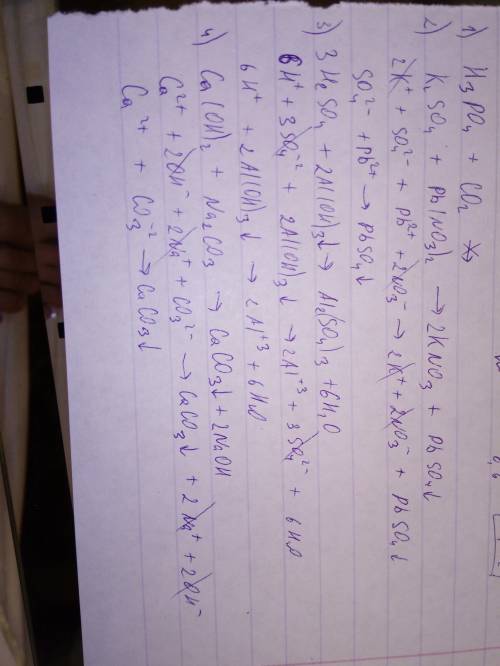 1) H3PO4 + CO2 ↛
2) K2SO4 + Pb(NO3)2 → 2KNO3 + PbSO4↓
2K⁺ + SO4²⁻ + Pb²⁺ + 2NO3⁻ → 2K⁺ + 2NO3⁻ + PbSO4↓
SO4²⁻ + Pb²⁺ → PbSO4↓
3) 3H2SO4 + 2Al(OH)3↓ → Al2(SO4)3 + 6H2O
6H⁺ + 3SO4⁻² + 2Al(OH)3↓ → 2Al⁺³ + 3SO4²⁻ + 6H2O
6H⁺ + 2Al(OH)3↓ → 2Al⁺³ + 6H2O
4) Ca(OH)2 + Na2CO3 → CaCO3↓ + 2NaOH
Ca²⁺ + 2OH⁻ + 2Na⁺ + CO3²⁻ → CaCO3↓ + 2Na⁺ + 2OH⁻
Ca²⁺ + CO3⁻² → CaCO3↓